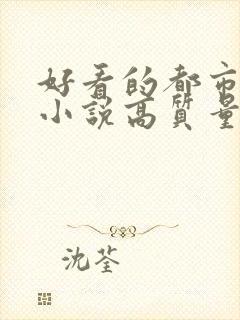 好看的都市
小说高质量
沈荃